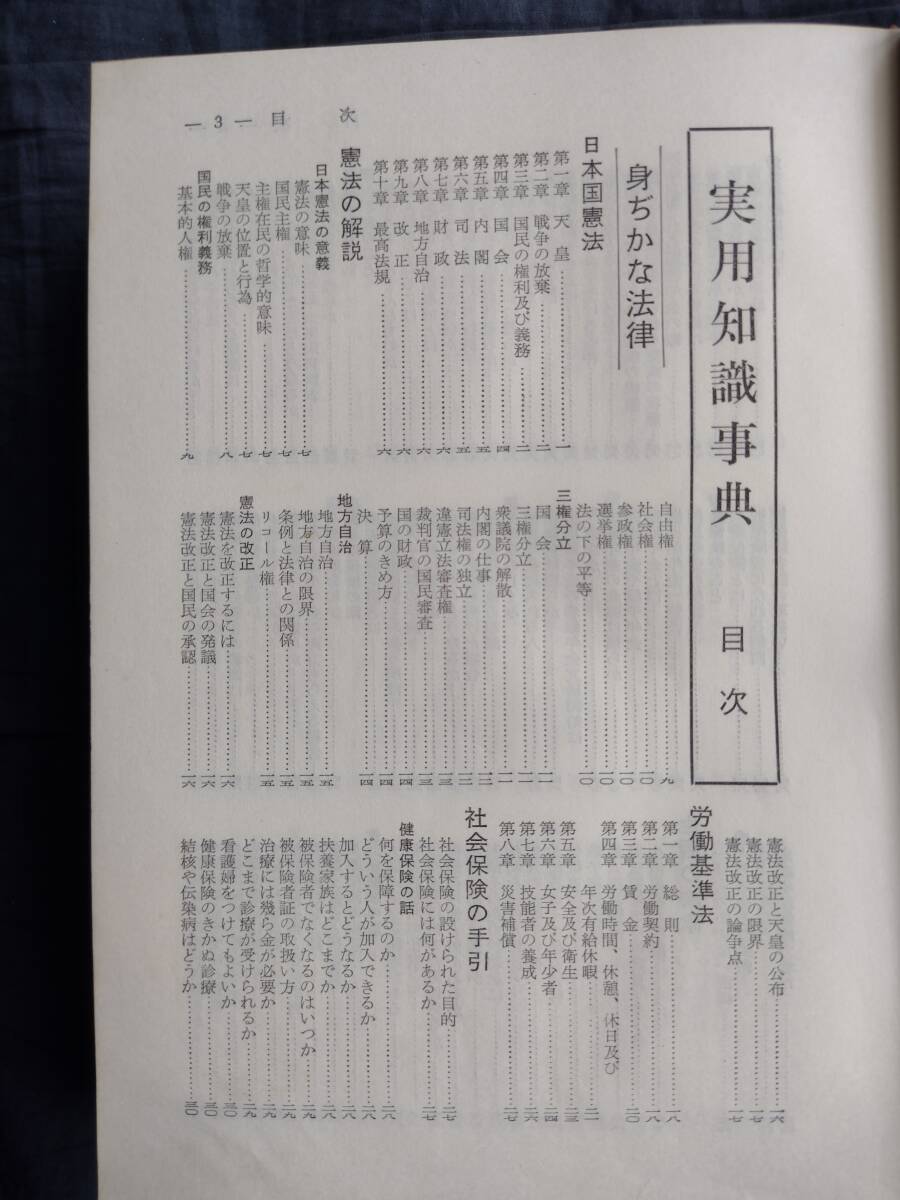 — 3 — 目 次
実用知識事典 目次
身ぢかな法律
日本国憲法
第一章 天皇……一
第二章 戦争の放棄……二
第三章 国民の権利及び義務……二
第四章 国会……四
第五章 内閣……五
第六章 司法……五
第七章 財政……六
第八章 地方自治……六
第九章 改正……六
第十章 最高法規……六
憲法の解説
日本憲法の意義
憲法の意味……七
国民主権……七
主権在民の哲学的意味……七
天皇の位置と行為……七
戦争の放棄……八
国民の権利義務
基本的人権……九
自由権……九
社会権……一〇
参政権……一〇
選挙権……一〇
法の下の平等……一〇
三権分立
国会……一一
三権分立……一一
衆議院の解散……一一
内閣の仕事……一二
司法権の独立……一二
違憲立法審査権……一三
裁判官の国民審査……一三
国の財政……一四
予算のきめ方……一四
決算……一四
地方自治
地方自治……一五
地方自治の限界……一五
条例と法律との関係……一五
リコール権……一五
憲法の改正
憲法を改正するには……一六
憲法改正と国会の発議……一六
憲法改正と国民の承認……一六
憲法改正と天皇の公布……一六
憲法改正の限界……一七
憲法改正の論争点……一七
労働基準法
第一章 総則……一八
第二章 労働契約……一八
第三章 賃金……二〇
第四章 労働時間、休憩、休日及び
年次有給休暇……二一
第五章 安全及び衛生……二三
第六章 女子及び年少者……二四
第七章 技能者の養成……二六
第八章 災害補償……二七
社会保険の手引
社会保険の設けられた目的……二七
社会保険には何があるか……二七
健康保険の話
何を保障するのか……二八
どういう人が加入できるか……二八
加入するとどうなるか……二八
扶養家族はどこまでか……二八
被保険者でなくなるのはいつか……二九
被保険者証の取扱い方……二九
治療には幾ら金が必要か……二九
どこまで診療が受けられるか……二九
看護婦をつけてもよいか……三〇
健康保険のきかぬ診療……三〇
結核や伝染病はどうか……三〇